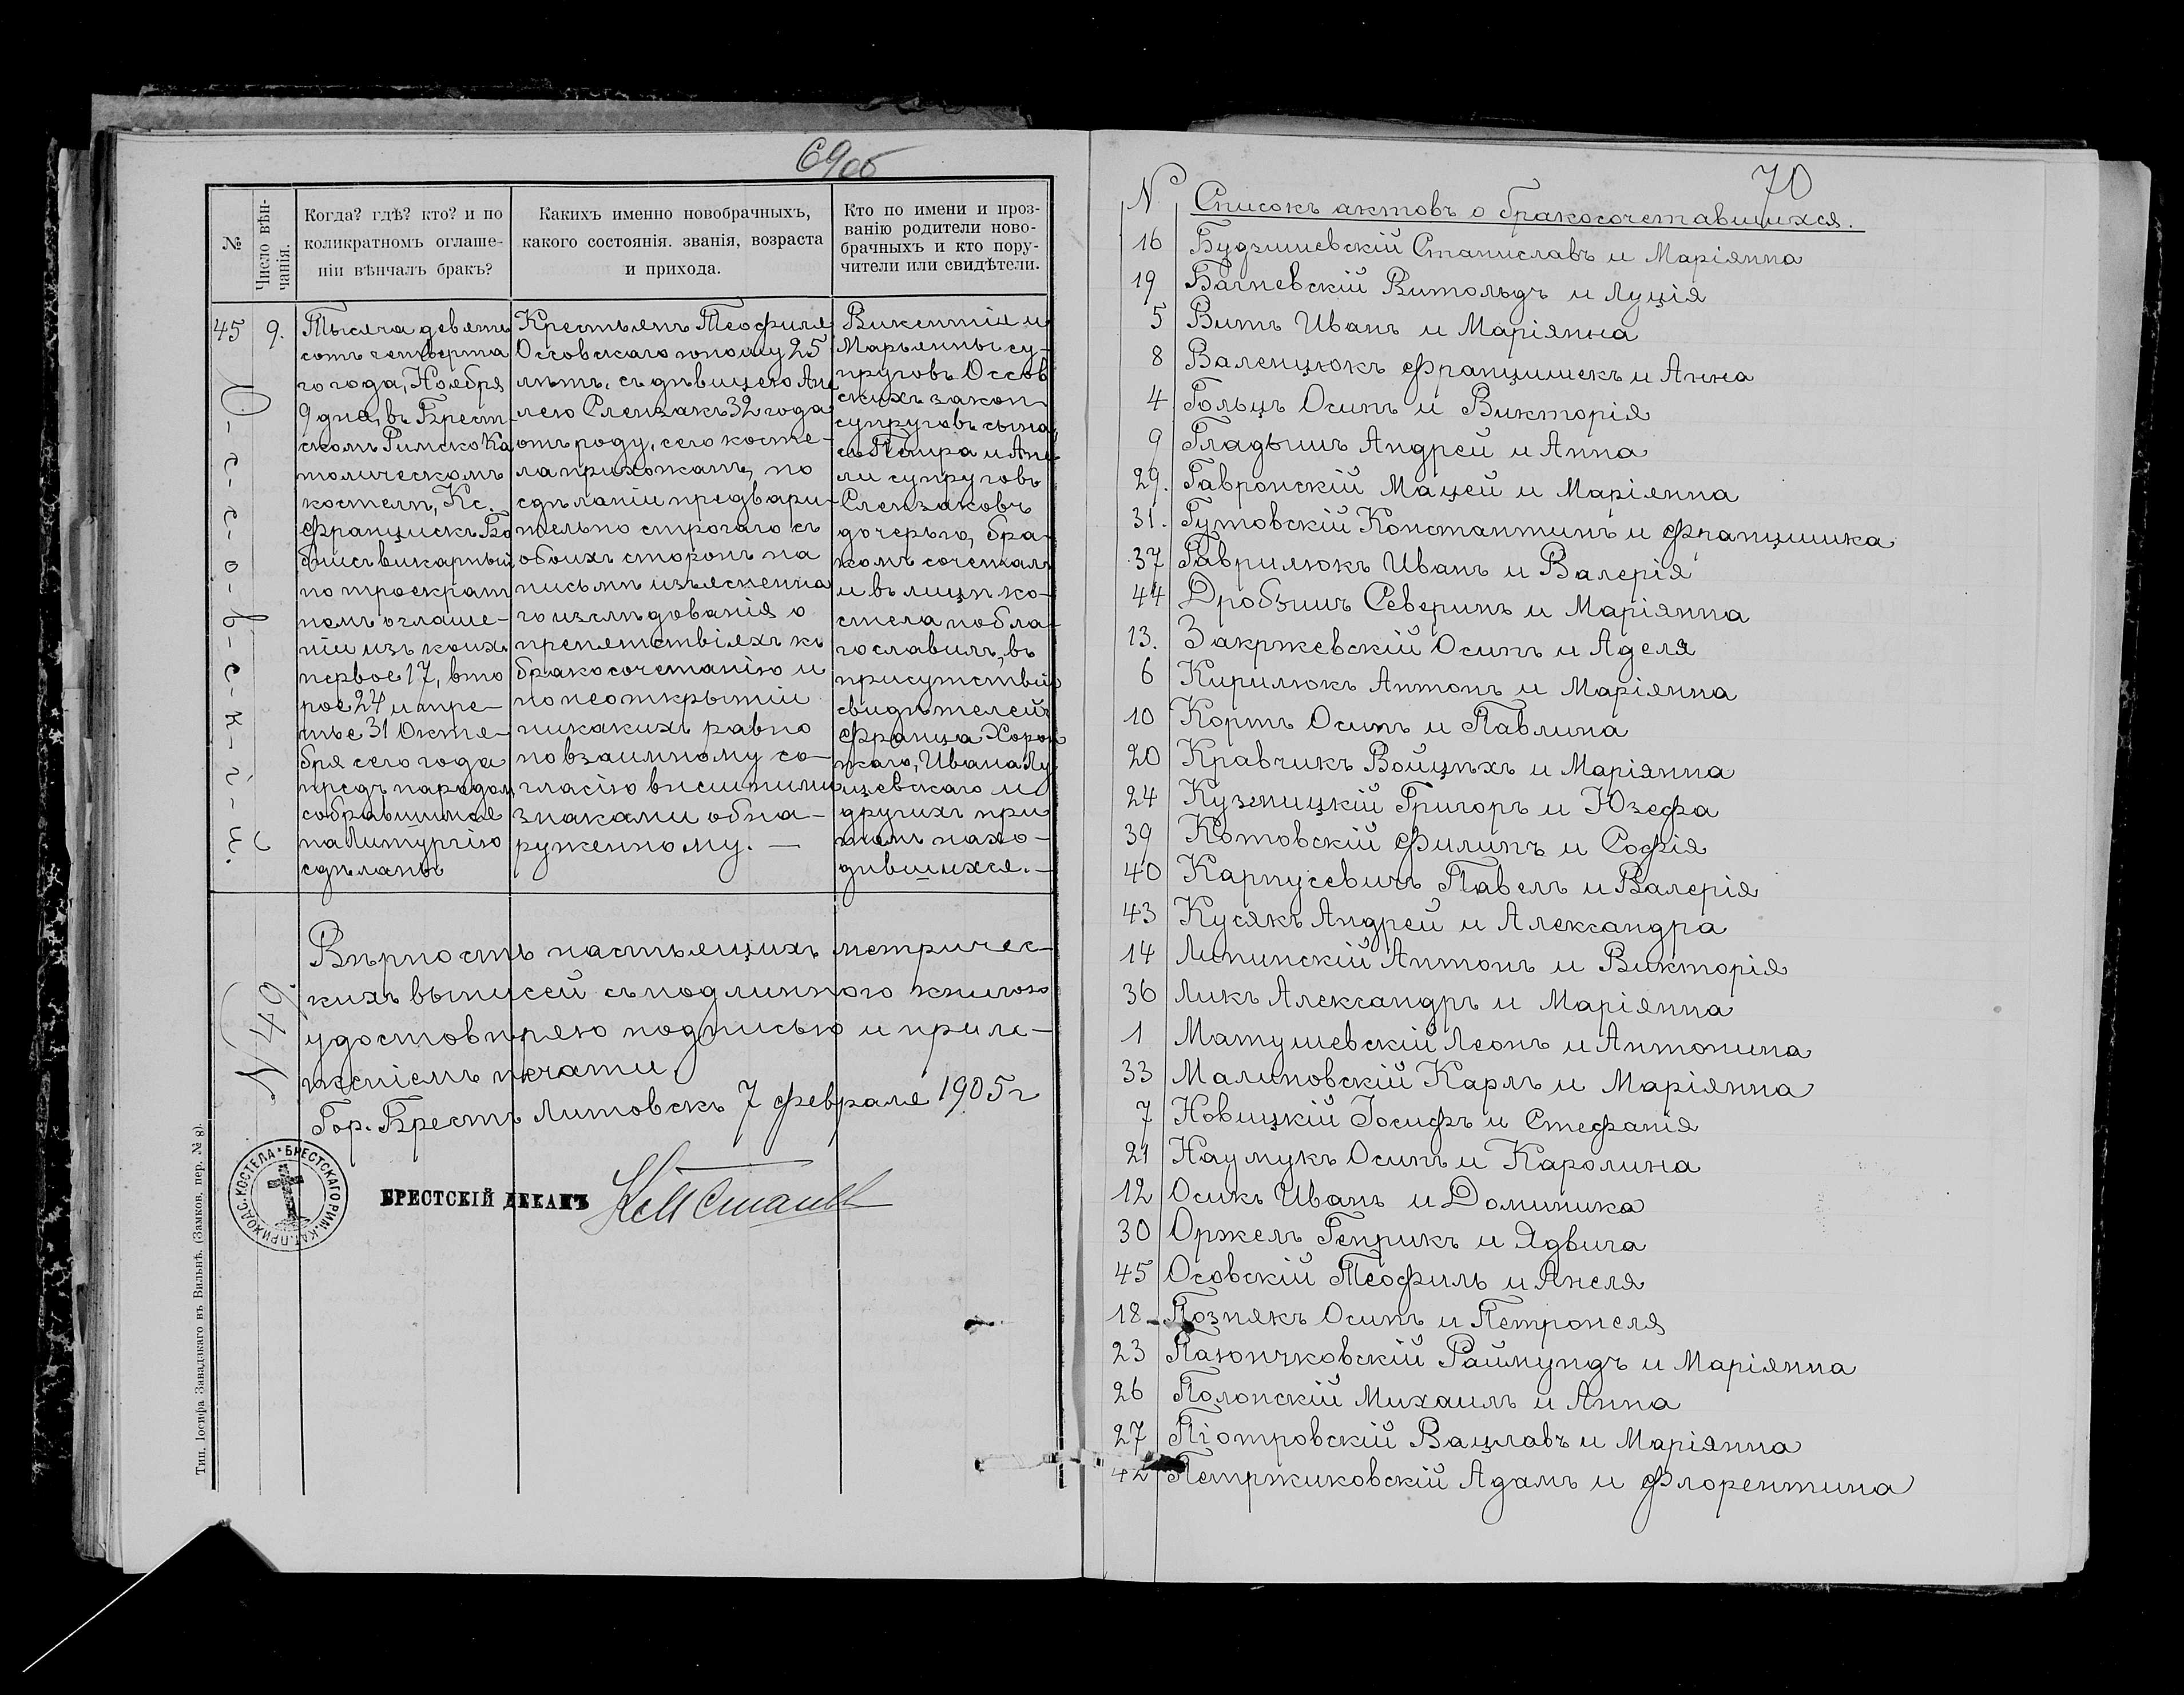 69об
№
Число вѣн-
чанія.
Когда? гдѣ? кто? и по
коликратномъ оглаше-
ніи вѣнчалъ бракъ?
Какихъ именно новобрачныхъ,
какого состоянія. званія, возраста
и прихода.
Кто по имени и проз-
ванію родители ново-
брачныхъ и кто пору-
чители или свидѣтели.
45
О-с-с-о-в-с-к-і-й.
9.
Тысяча девять
сотъ четверта
го года, Ноября
9 дня, въ Брест-
скомъ Римско Ка
толическомъ
костелѣ, Кс.
Францискъ
викарный
по троекрат
номъ оглаше-
ніи изъ коихъ
первое 17, вто
рое 24 и тре-
тье 31 Октя-
бря сего года
предъ народом,
собравшимся
на Литургію
сдѣланы
Крестьянъ Теофиля
Оссовскаго юношу 25
лѣтъ, съ дѣвицею Ане
лею Слензакъ 32 года
отъ роду, сего косте-
ла прихожанъ, по
сдѣланіи предвари-
тельно строгаго съ
обоихъ сторонъ на
письмѣ изъясненна
го изслѣдованія о
препятствіяхъ къ
бракосочетанію и
по неоткрытіи
никакихъ равно
по взаимному со-
гласію внешними
знаками обна-
руженному. —
Викентія и
Марьянны су-
пруговъ Оссов
скихъ закон-
супруговъ сына,
съ Петра и Ане-
ли супруговъ
Слензаковъ
дочерью, бра-
комъ сочеталъ
и въ лицѣ ко-
стела побла-
гославилъ, въ
присутствіи
свидѣтелей
Франца
Ивана Лу
щевскаго и
другихъ при
томъ нахо-
дившихся. —
N 49.
Вѣрность настьящихъ метричес-
кихъ выписей съ подлинного книгою
удостовѣряю подписью и прило-
женіемъ печати.
Гор. Брестъ Литовскъ 7 февраля 1905 г
БРЕСТСКАГО РИМ. КАТ. ПРИХОДС. КОСТЕЛА
БРЕСТСКІЙ ДЕКАНЪ
Тип. Іосифа Завадзкаго въ Вильнѣ. (Замков. пер. № 8).
70
N Списокъ актовъ о бракосочетавшихся.
16 Будзишевскій Станиславъ и Маріянна
19 Багневскій Витольдъ и Луція
5 Витъ Иванъ и Маріянна
8 Валенцюкъ Францишекъ и Анна
4 Гольцъ Осипъ и Викторія
9 Гладышъ Андрей и Анна
29. Гавронскій Мацей и Маріянна
31. Гутовскій Константинъ и Францишка
37 Гаврилюкъ Иванъ и Валерія
44 Дробышъ Северинъ и Маріянна
13. Закржевскій Осипъ и Аделя
6 Кирилюкъ Антонъ и Маріянна
10 Кортъ Осипъ и Павлина
20 Кравчикъ Войцѣхъ и Маріянна
24 Кузмицкій Григоръ и Юзефа
39 Котовскій Филипъ и Софія
40 Карпусевичъ Павелъ и Валерія
43 Кусякъ Андрей и Александра
14 Липинскій Антонъ и Викторія
36 Ликъ Александръ и Маріянна
1 Матушевскій Леонъ и Антонина
33 Малиновскій Карлъ и Маріянна
7 Новицкій Іосифъ и Стефанія
21 Наумукъ Осипъ и Каролина
12 Осикъ Иванъ и Доминика
30 Оржелъ Генрикъ и Ядвига
45 Осовскій Теофиль и Анеля
18 Познякъ Осипъ и Петронеля
23 Паюнчковскій Раймундъ и Маріянна
26 Полонскій Михаилъ и Анна
27 Піотровскій Вацлавъ и Маріянна
42 Петржиковскій Адамъ и Флорентина